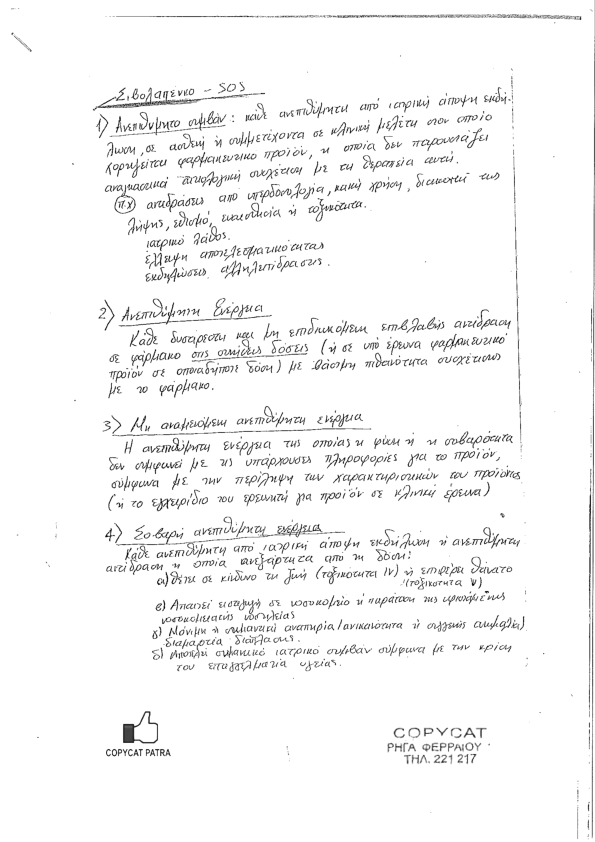 Σιβολαπενκο - SOS
1) Ανεπιθύμητο συμβάν: κάθε ανεπιθύμητη από ιατρική άποψη εκδή-
λωση, σε ασθενή ή συμμετέχοντα σε κλινική μελέτη στον οποίο
χορηγείται φαρμακευτικό προϊόν, η οποία δεν παρουσιάζει
αναγκαστικά αιτιολογική συσχέτιση με τη θεραπεία αυτή.
π.χ αντιδράσεις από υπερδοσολογία, κακή χρήση, διακοπή της
λήψης, εθισμό, ευαισθησία ή τοξικότητα.
ιατρικό λάθος.
έλλειψη αποτελεσματικότητας
εκδηλώσεις αλληλεπίδρασης.
2) Ανεπιθύμητη Ενέργεια
Κάθε δυσάρεστη και μη επιδιωκόμενη επιβλαβής αντίδραση
σε φάρμακο στις συνήθεις δόσεις (ή σε υπό έρευνα φαρμακευτικό
προϊόν σε οποιαδήποτε δόση) με βάσιμη πιθανότητα συσχέτισης
με το φάρμακο.
3) Μη αναμενόμενη ανεπιθύμητη ενέργεια
Η ανεπιθύμητη ενέργεια της οποίας η φύση ή η σοβαρότητα
δεν συμφωνεί με τις υπάρχουσες πληροφορίες για το προϊόν,
σύμφωνα με την περίληψη των χαρακτηριστικών του προϊόντος
(ή το εγχειρίδιο του ερευνητή για προϊόν σε κλινική έρευνα)
4) Σοβαρή ανεπιθύμητη ενέργεια
Κάθε ανεπιθύμητη από ιατρική άποψη εκδήλωση ή ανεπιθύμητη
αντίδραση η οποία ανεξάρτητα από τη δόση:
α) θέτει σε κίνδυνο τη ζωή (τοξικότητα IV) ή επιφέρει θάνατο
(τοξικότητα V)
β) Απαιτεί εισαγωγή σε νοσοκομείο ή παράταση της υφιστάμενης
νοσοκομειακής νοσηλείας
γ) Μόνιμη ή σημαντική αναπηρία/ανικανότητα ή συγγενής ανωμαλία/
διαμαρτία διάπλασης.
δ) Αποτελεί σημαντικό ιατρικό συμβάν σύμφωνα με την κρίση
του επαγγελματία υγείας.
COPYCAT PATRA
COPYCAT
ΡΗΓΑ ΦΕΡΡΑΙΟΥ
ΤΗΛ. 221 217